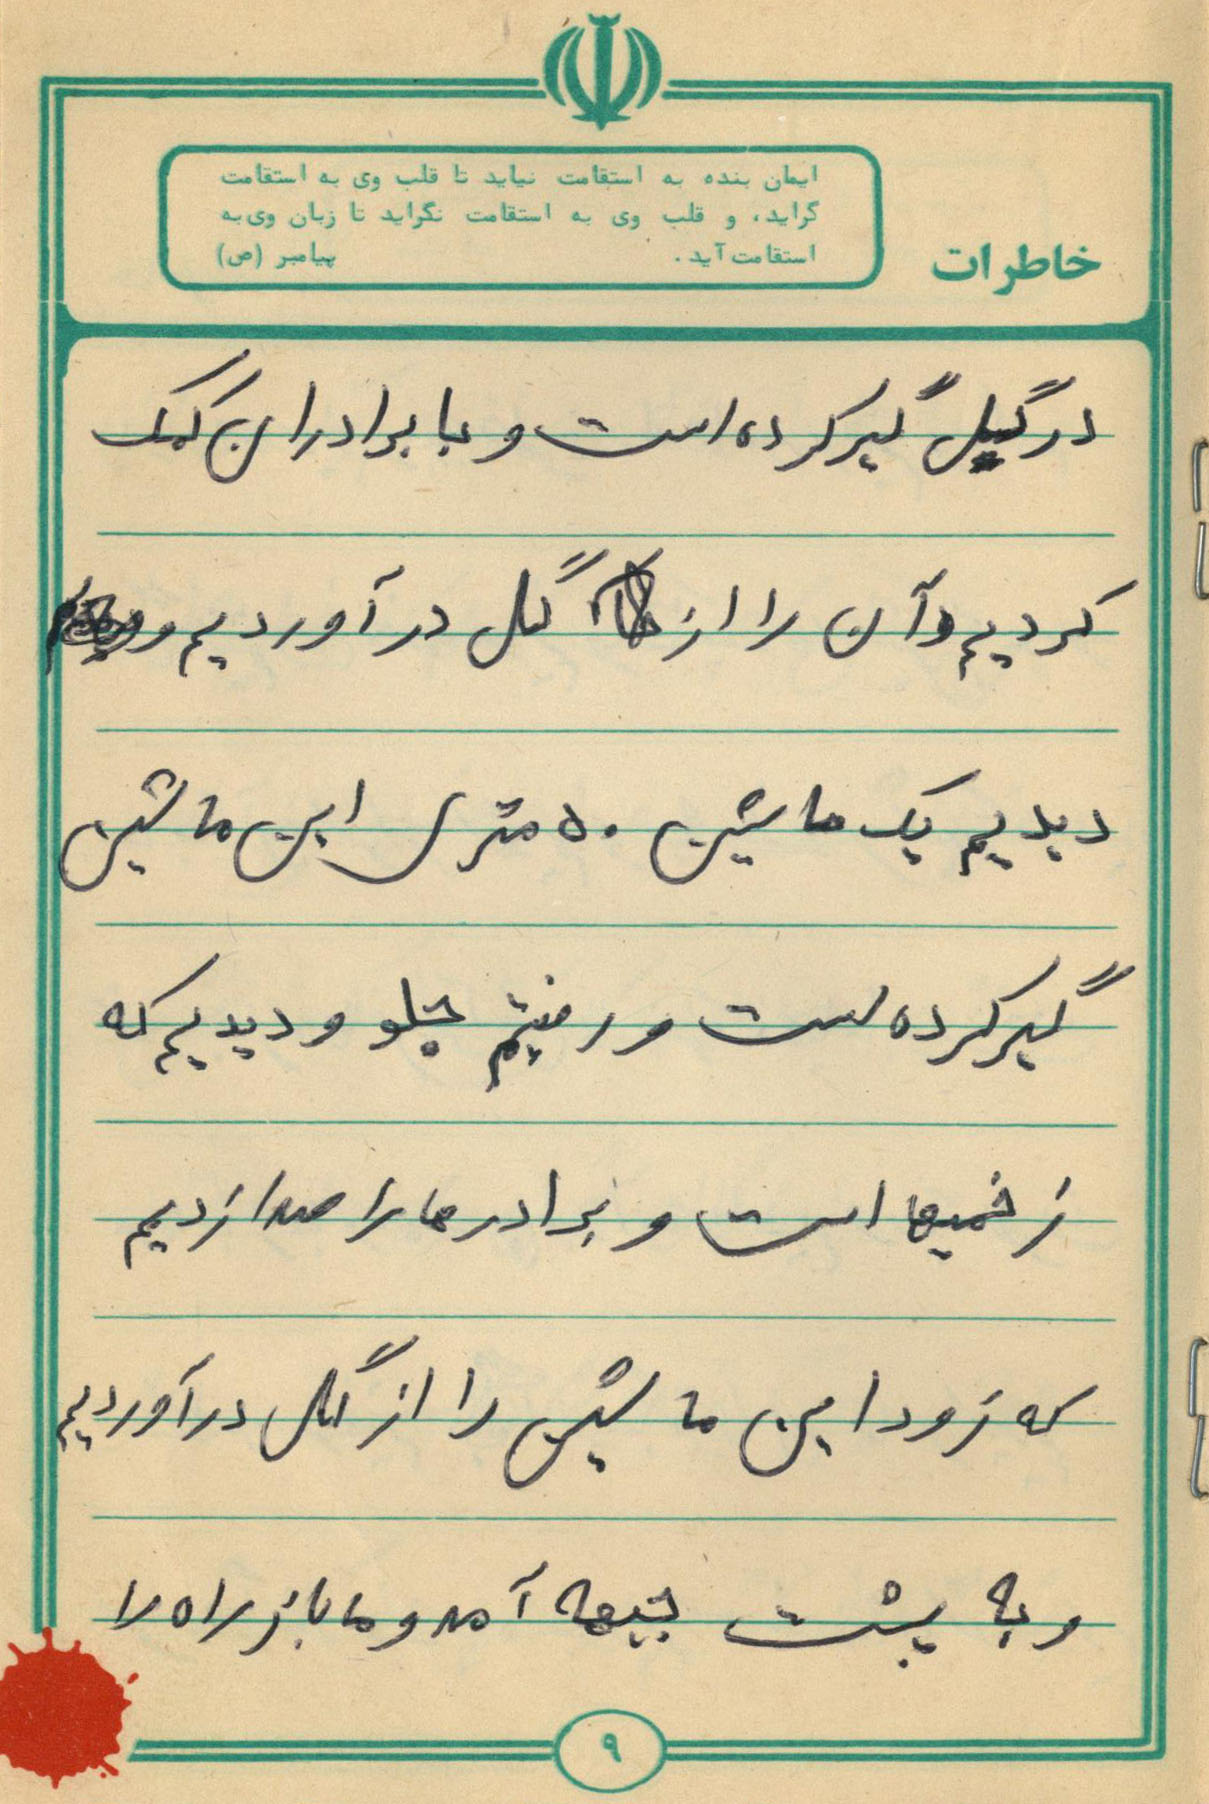 ایمان بنده به استقامت نیاید تا قلب وی به استقامت
گراید، و قلب وی به استقامت نگراید تا زبان وی به
استقامت آید. پیامبر (ص)
خاطرات
در گیل گیر کرده است و با برادران کمک
کردیم و آن را از گل در آوردیم و
دیدیم یک ماشین ۵۰ متری این ماشین
گیر کرده است و رفیتم جلو و دیدیم که
زخمیها است و برادرها را صدا زدیم
که زود این ماشین را از گل در آوردیم
و به پشت جبهه آمد و ما باز راه را
۹